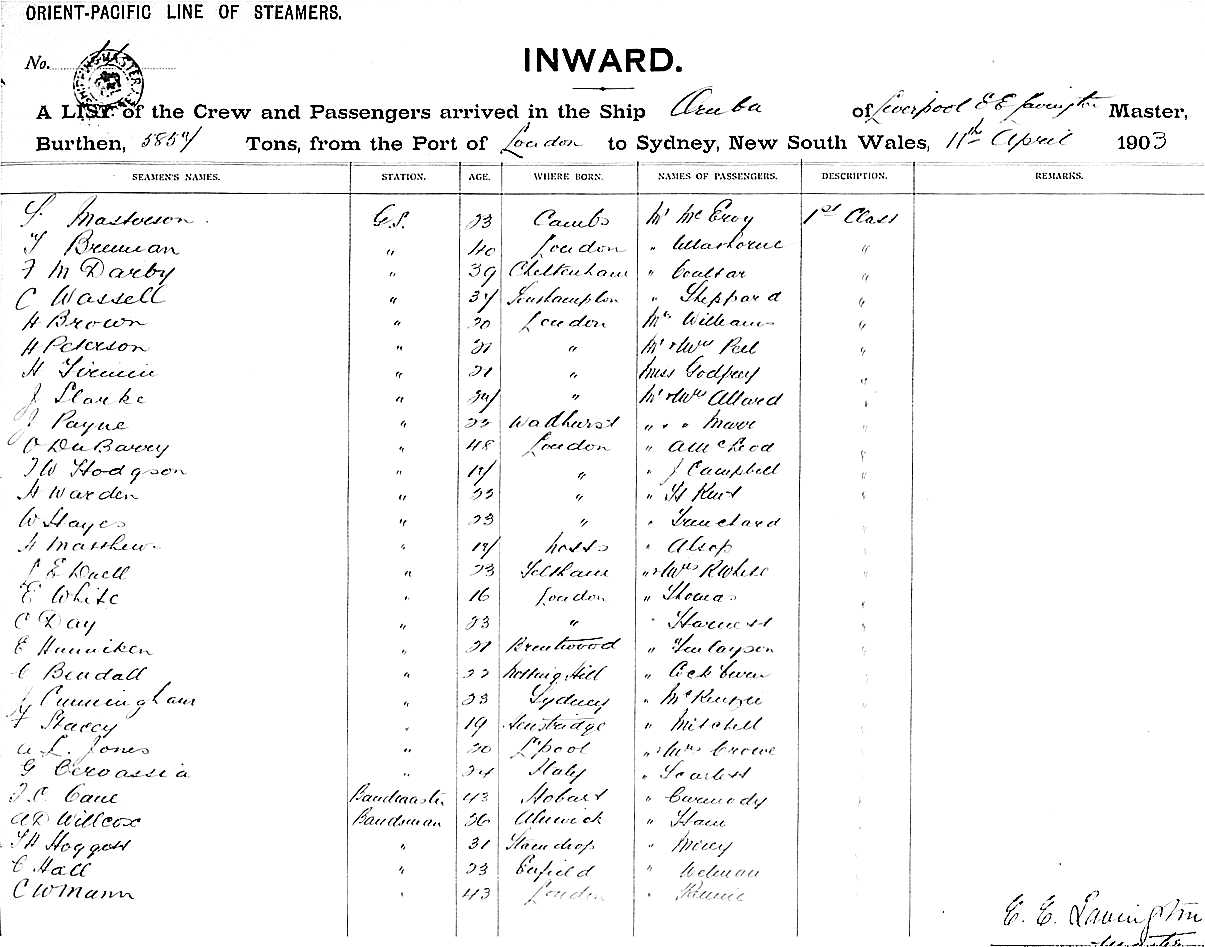 ORIENT-PACIFIC LINE OF STEAMERS.
No.
INWARD.
A LIST of the Crew and Passengers arrived in the Ship Oruba of Liverpool E E Lavington Master,
Burthen, 5857 Tons, from the Port of London to Sydney, New South Wales, 11th April 1903
SEAMEN'S NAMES. STATION. AGE. WHERE BORN. NAMES OF PASSENGERS. DESCRIPTION. REMARKS.
S. Masterson G.S. 23 Cambs Mr McEvoy 1st Class
T Brennan " 40 London " "
F M Darby " 39 Cheltenham " Coultar "
C Wassell " 37 " Sheppard "
H Brown " 20 London Mrs Williams "
H Peterson " 21 " Mr & Mrs Peel "
H Firmin " 21 " Miss Godfrey "
J Clarke " 27 " Mr & Mrs Allwood "
J Payne " 22 Wadhurst " " "
O Du Barry " 48 London " A McLeod "
F W Hodgson " 17 " " J Campbell "
H Warden " 22 " " Kent "
W Hayes " 23 " " Trenchard "
H Matthews " 17 Notts " Alsop "
J E Duell " 23 Feltham " & Mrs R White "
E White " 16 London " Thomas "
C Day " 23 " " Harness "
E Hunnicken " 21 Brentwood " Finlayson "
C Bendall " 22 Notting Hill " "
J Cunningham " 23 Sydney " McKenzie "
F Stacey " 19 Henstridge " Mitchell "
A L. Jones " 20 L'pool " & Mrs Crowe "
G Cervassia " 24 Italy " Scarlett "
F. C. Cane Bandmaster 43 Hobart " Carmody "
A D Willcox Bandsman 26 Alnwick " Ham "
T H Hoggett " 31 Staindrop " "
C Hall " 23 Enfield " Welman "
C W Mann " 43 London " Rennie
E. E. Lavington
Master